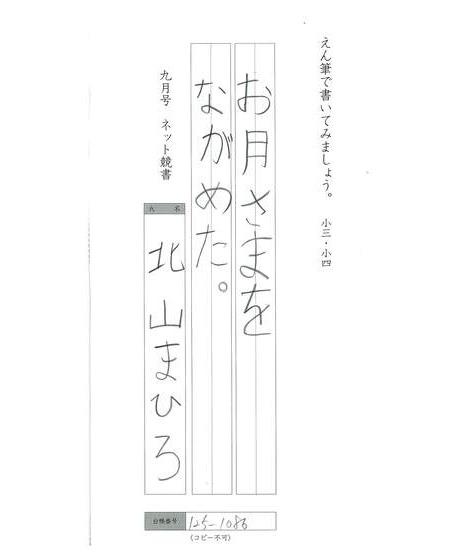 えん筆で書いてみましょう。 小三・小四
お月さまを
ながめた。
九月号 ネット競書
氏名
北山まひろ
台帳番号 125-1086
(コピー不可)